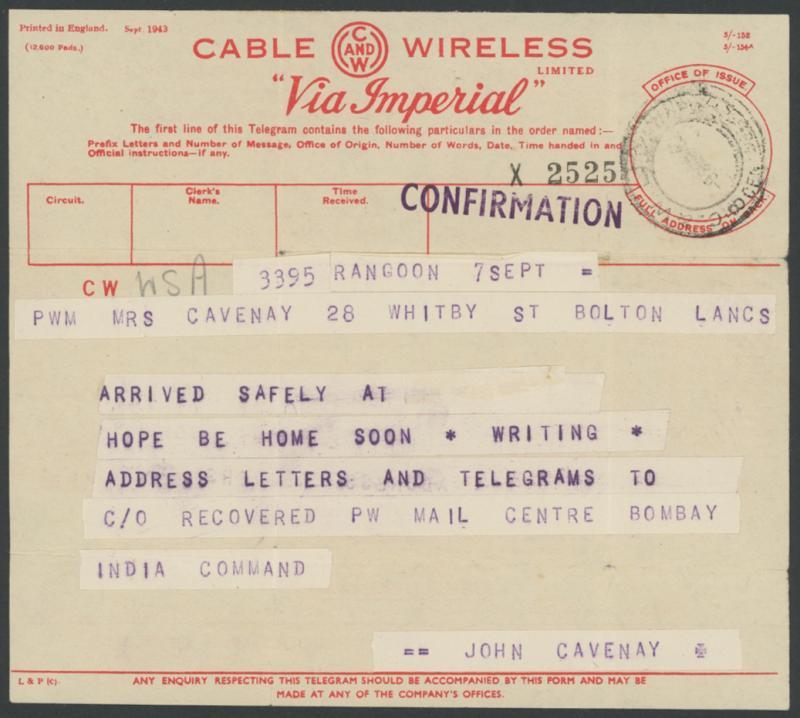 Printed in England. Sept 1943
(12,600 Pads.)
5/-152
5/-154A
CABLE C AND W WIRELESS
LIMITED
"Via Imperial"
OFFICE OF ISSUE
The first line of this Telegram contains the following particulars in the order named:—
Prefix Letters and Number of Message, Office of Origin, Number of Words, Date, Time handed in and
Official instructions—if any.
X 2525
FULL ADDRESS ON BACK
Circuit.
Clerk's
Name.
Time
Received.
CONFIRMATION
CW WSA 3395 RANGOON 7SEPT =
PWM MRS CAVENAY 28 WHITBY ST BOLTON LANCS
ARRIVED SAFELY AT
HOPE BE HOME SOON * WRITING *
ADDRESS LETTERS AND TELEGRAMS TO
C/O RECOVERED PW MAIL CENTRE BOMBAY
INDIA COMMAND
== JOHN CAVENAY
L & P (C).
ANY ENQUIRY RESPECTING THIS TELEGRAM SHOULD BE ACCOMPANIED BY THIS FORM AND MAY BE
MADE AT ANY OF THE COMPANY'S OFFICES.